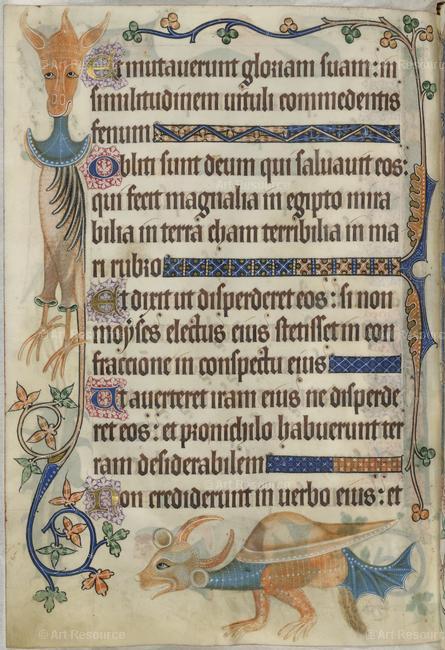 Et mutaverunt gloriam suam: in
similitudinem vituli commedentis
fenum
Obliti sunt deum qui saluauit eos:
qui fecit magnalia in egipto mira
bilia in terra cham terribilia in ma
ri rubro
Et dixit ut disperderet eos: si non
moyses electus eius stetisset in con
fraccione in conspectu eius
Ut averteret iram eius ne disperde
ret eos: et pro nichilo habuerunt ter
ram desiderabilem
Non crediderunt in verbo eius: et
© Art Resource